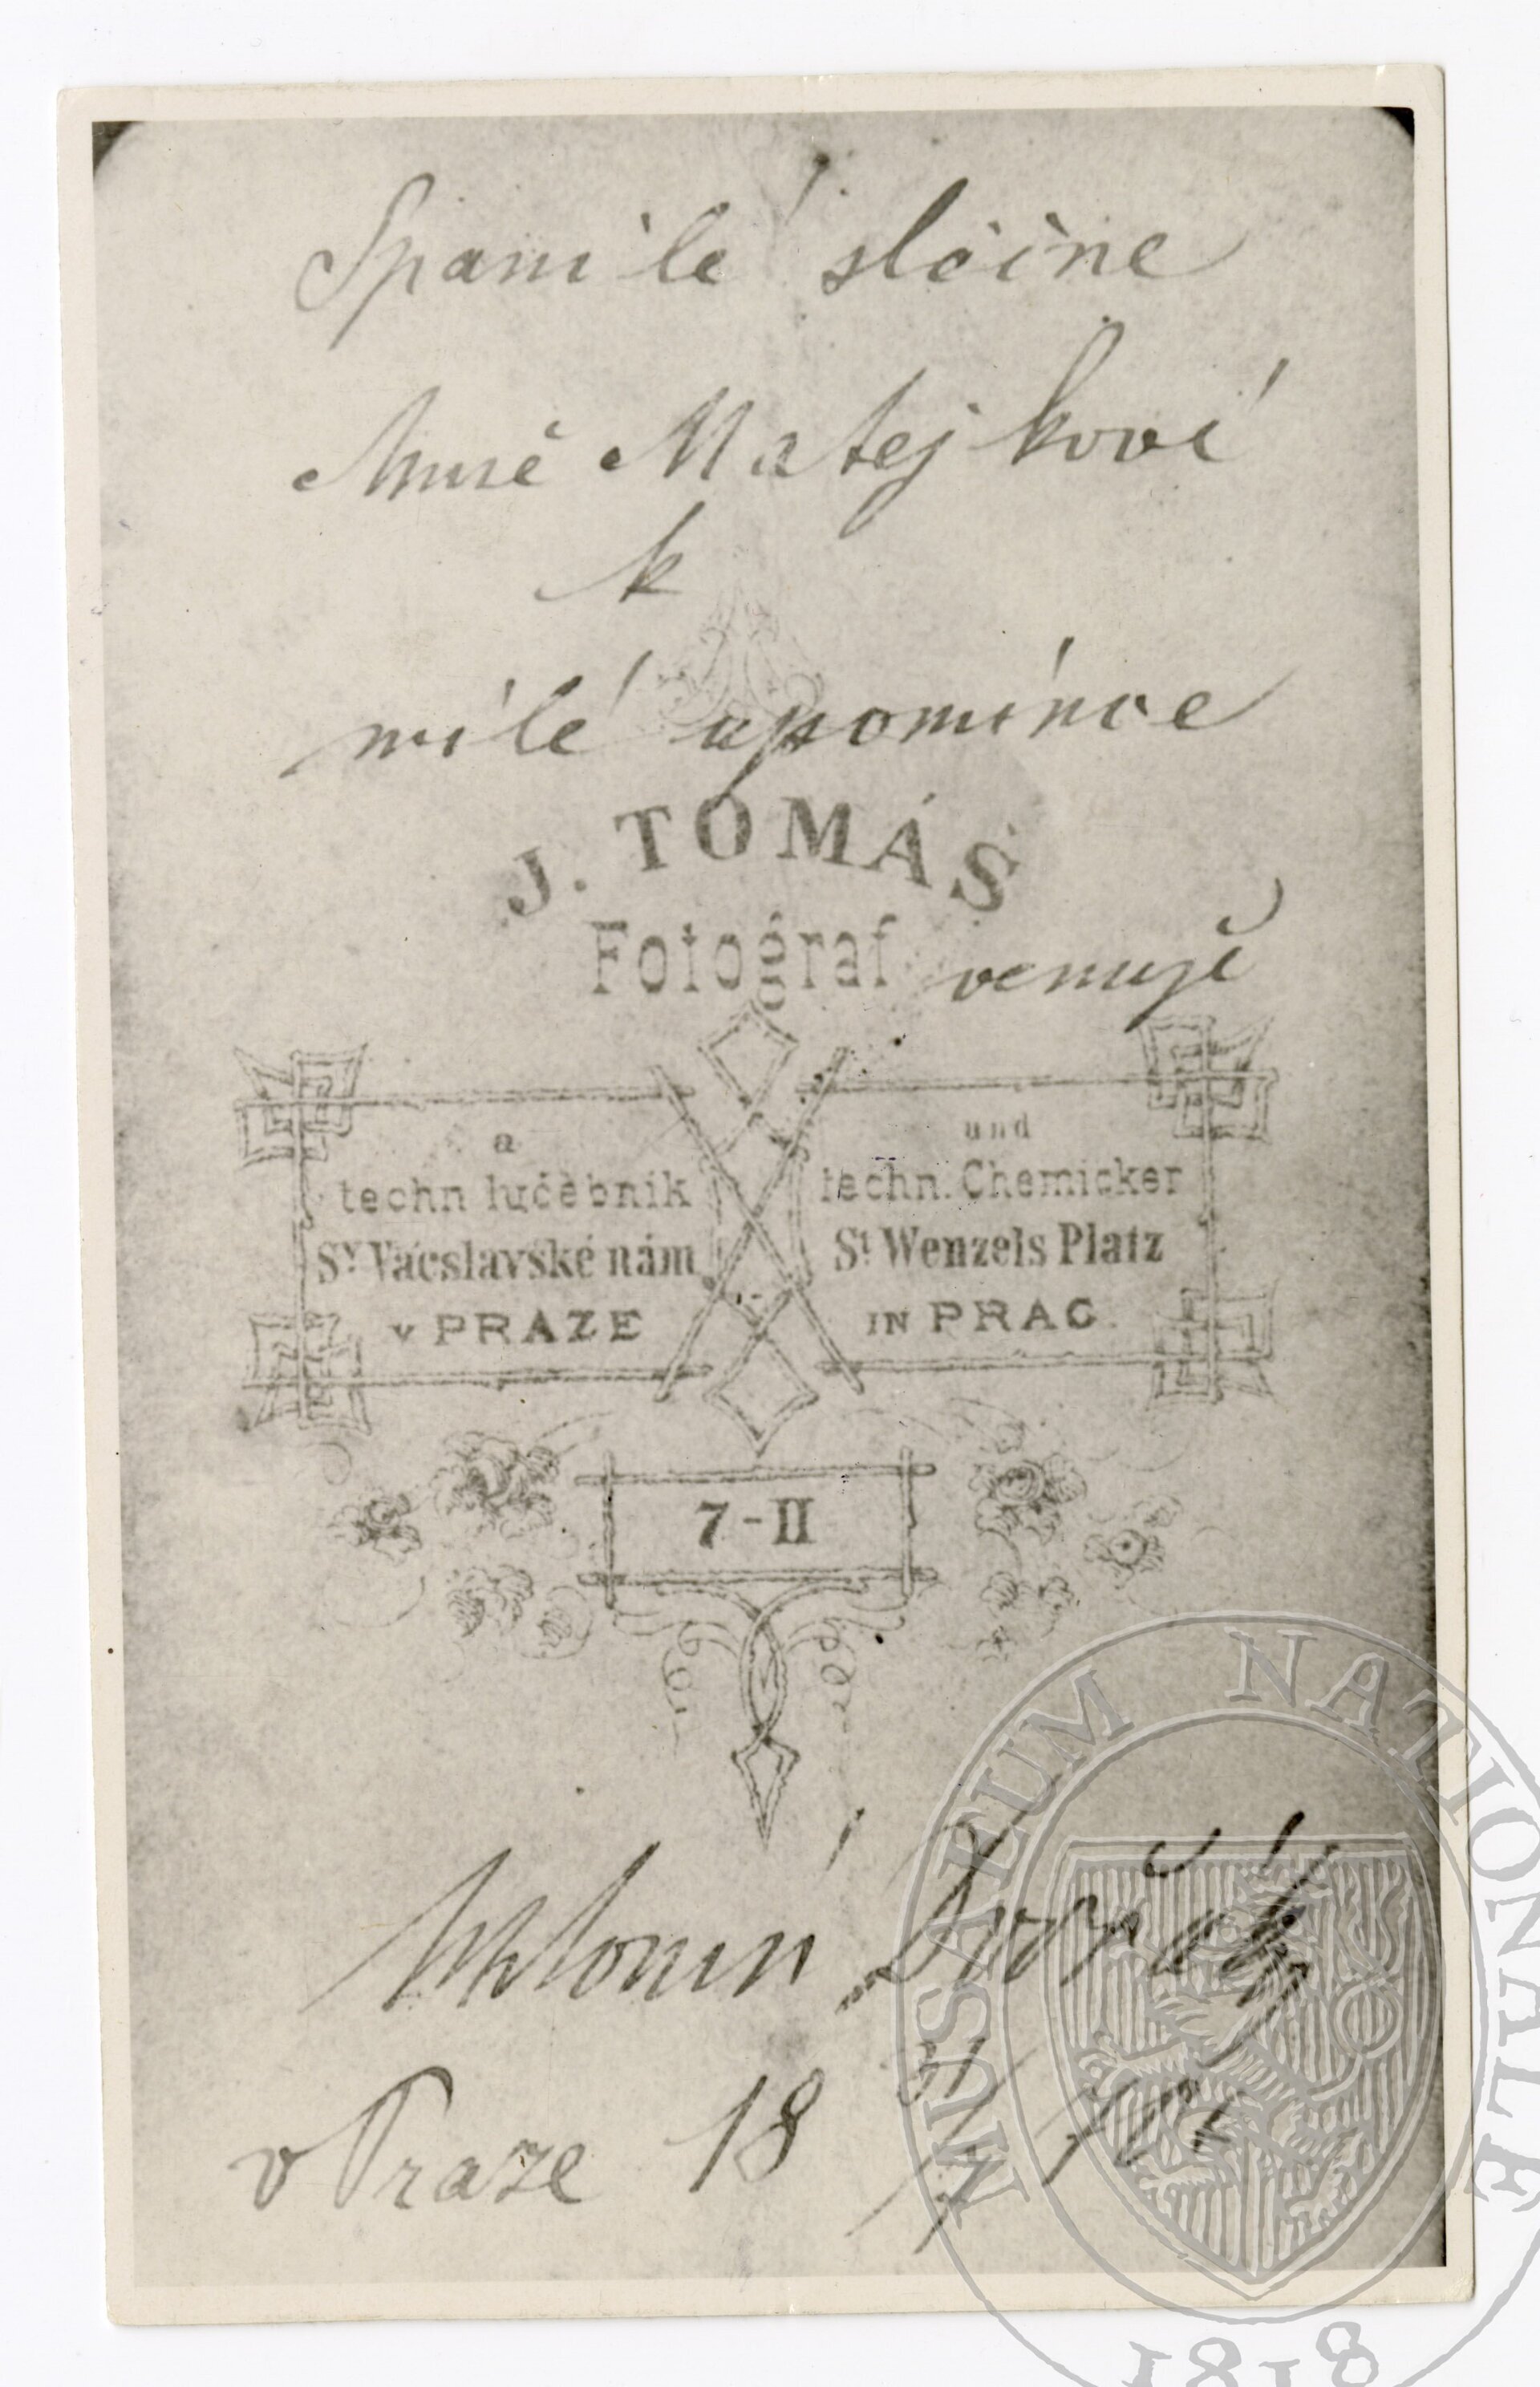 Spanilé slečně
Anně Matějkové
k
milé upomínce
J. TOMÁŠ
Fotograf
venuje
a
techn lučebnik
Sv. Vácslavské nám
v PRAZE
und
techn. Chemicker
St Wenzels Platz
IN PRAG.
7-II
Antonín Dvořák
v Praze 18
MUSAEUM NATIONALE
1818